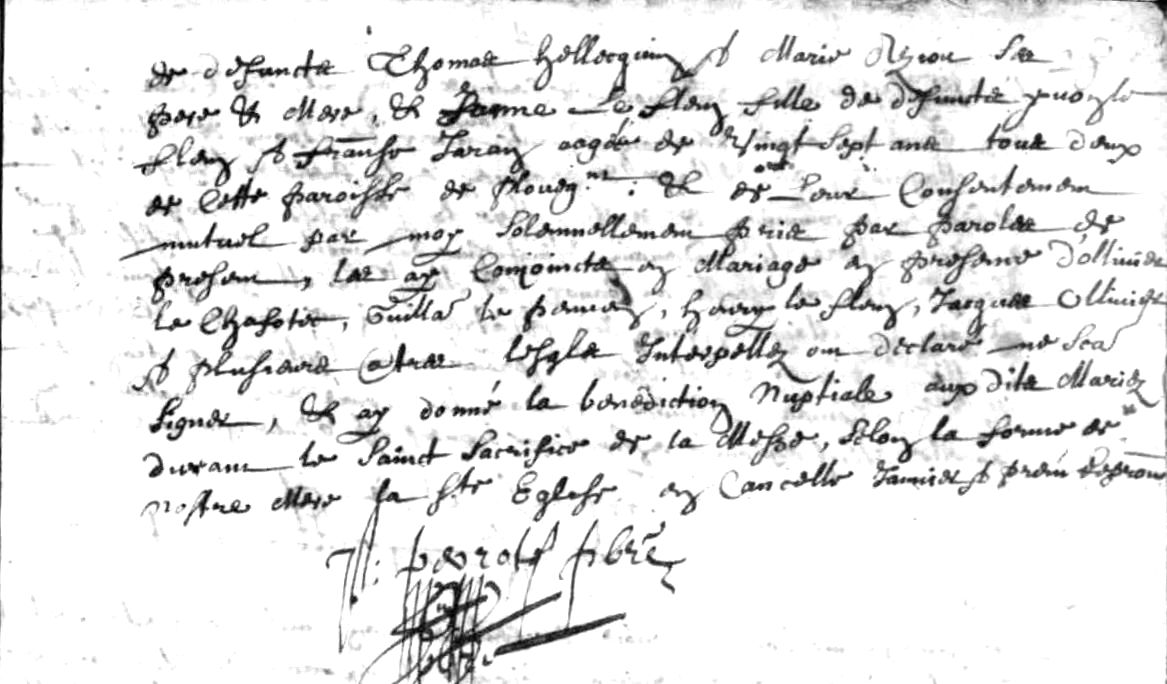 de defuncts Thomas hellecquin et Marie ses
pere et Mere, et Janne Le fleuz fille de defuncts yuon le
fleuz et franse Jaran aagée de vingt Sept ans tous deux
de Cette paroisse de Ploueg.nt: et de Leur Consentemen
mutuel par moy Solemnellemen pris par paroles de
presem, les ay Conjoincts en Mariage en presense d'ollivier
le Chasoter, Guilla le pennez, hervy le fleuz, Jacques Ollivier
et plusieurs atres lesqls Interpellez om declaré ne Sca
Signer, et ay donné la benediction Nuptiale aux dits Mariez
duram le Sainct Sacrifice de la Messe, Selon la forme de
nostre Mere la Ste Eglise en
perrot pbre